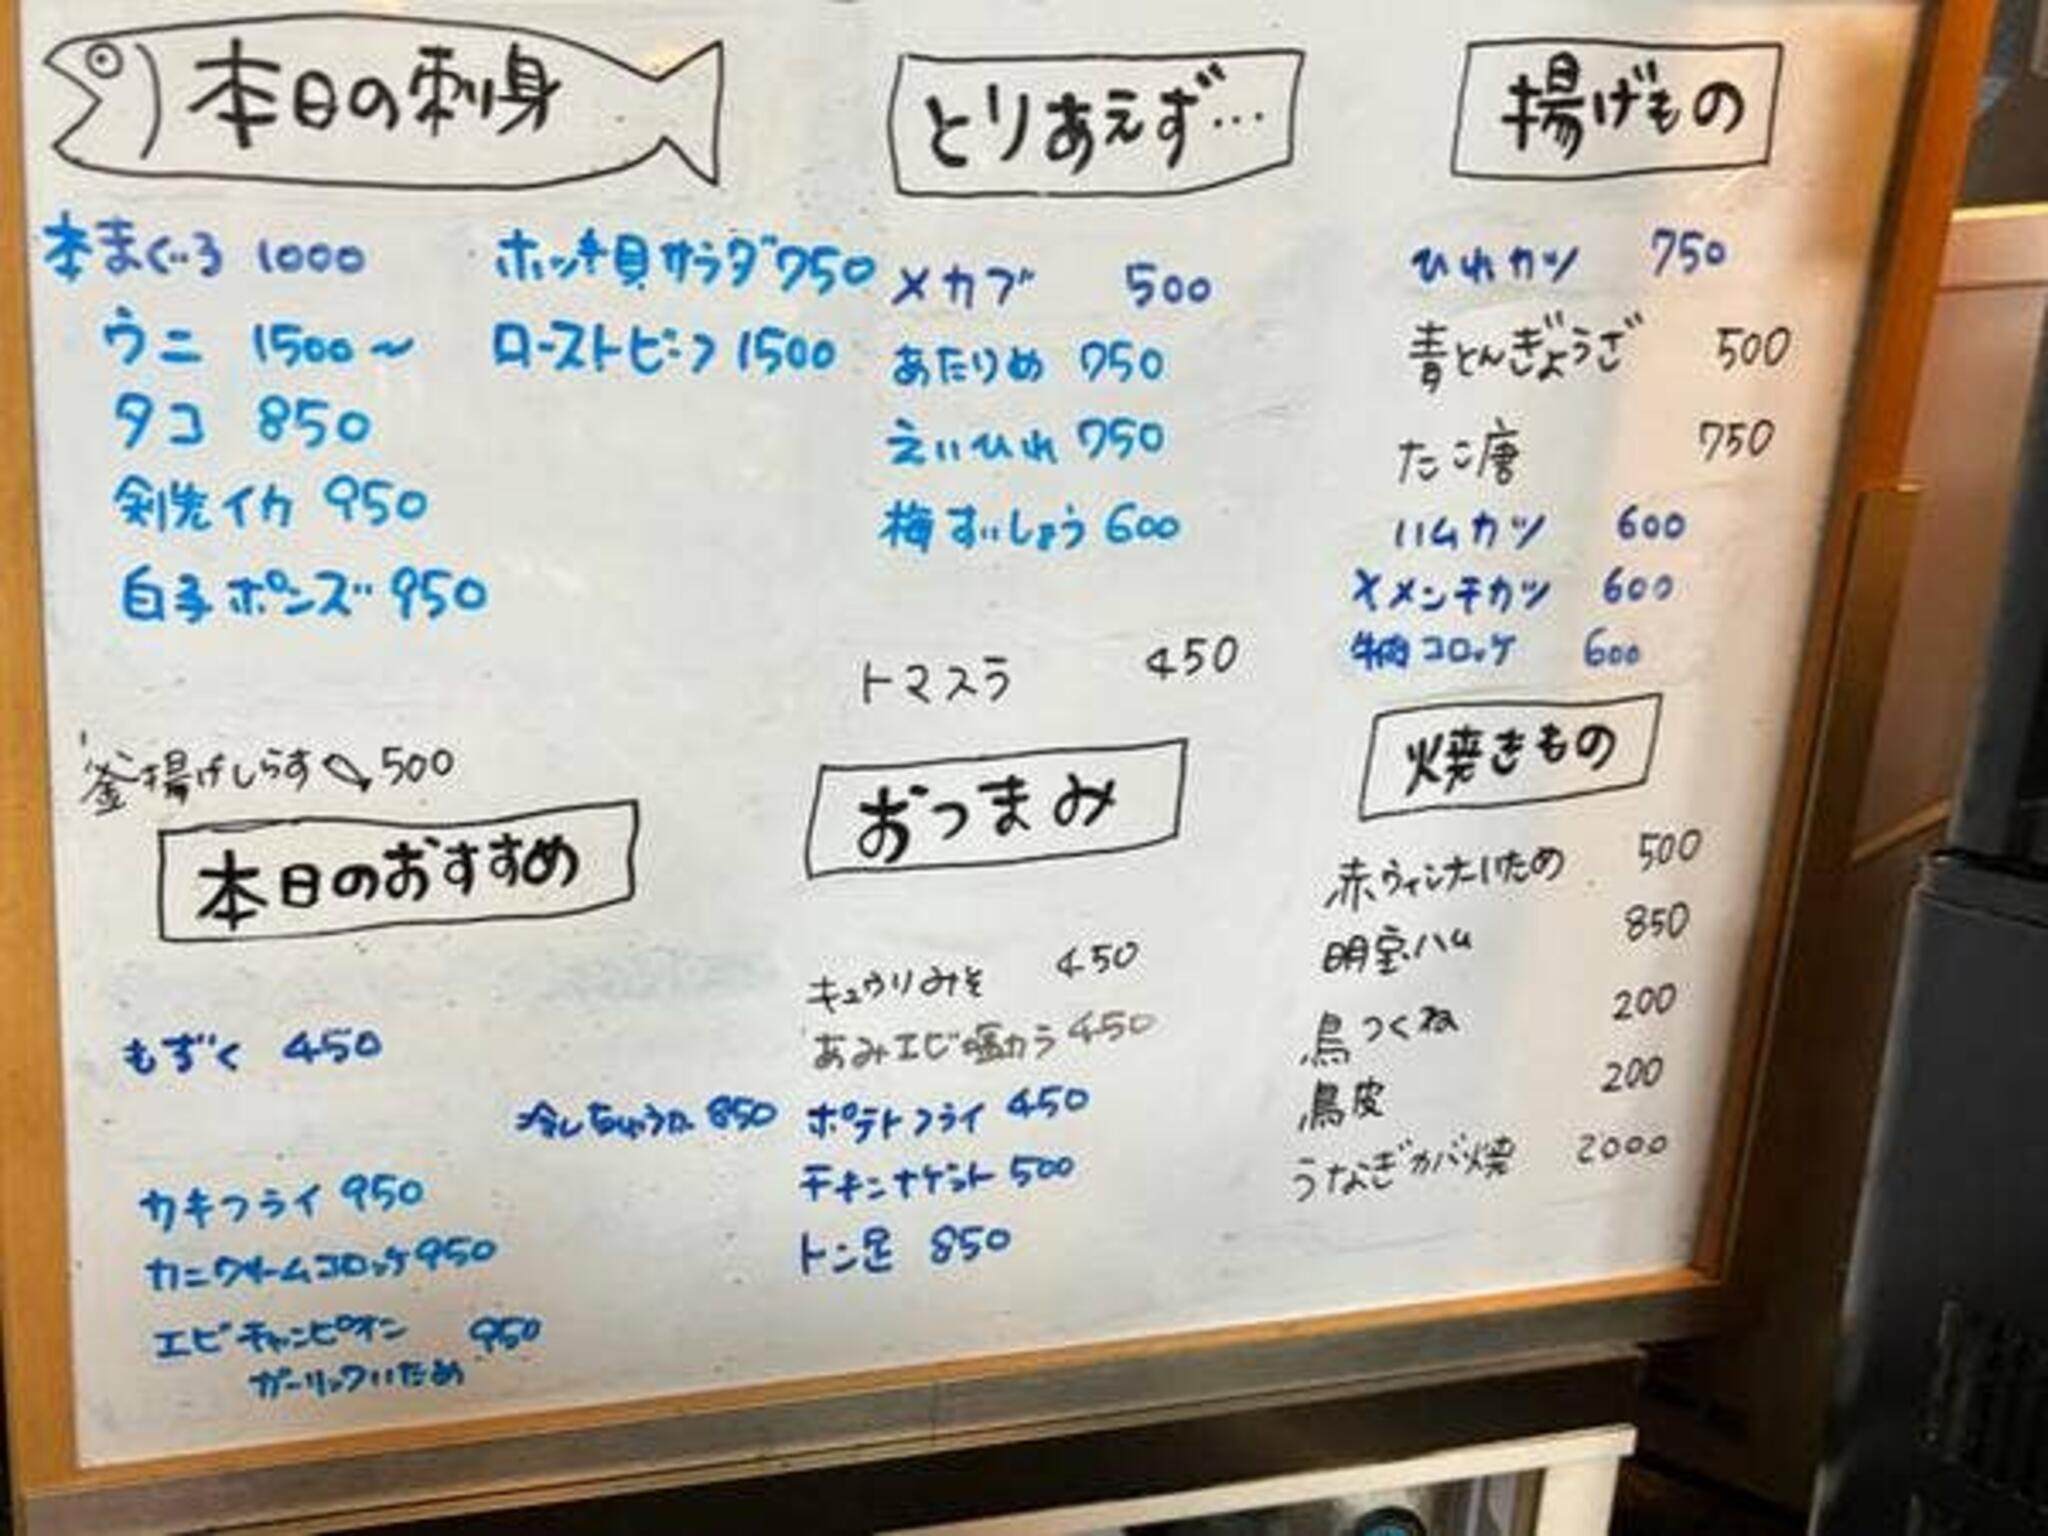 本日の刺身
本まぐろ 1000
ウニ 1500～
タコ 850
剣先イカ 950
白子ポンズ 950
ホッキ貝サラダ 750
ローストビーフ 1500
釜揚げしらす 500
本日のおすすめ
もずく 450
冷しちゅうか 850
カキフライ 950
カニクリームコロッケ 950
エビチャンピオン 950
ガーリックいため
とりあえず…
メカブ 500
あたりめ 750
えいひれ 750
梅すいしょう 600
トマスラ 450
おつまみ
キュウリみそ 450
あみエビ塩カラ 450
ポテトフライ 450
チキンナゲット 500
トン足 850
揚げもの
ひれカツ 750
青とんぎょうざ 500
たこ唐 750
ハムカツ 600
メンチカツ 600
牛肉コロッケ 600
焼きもの
赤ウィンナーいため 500
明宝ハム 850
鳥つくね 200
鳥皮 200
うなぎカバ焼 2000